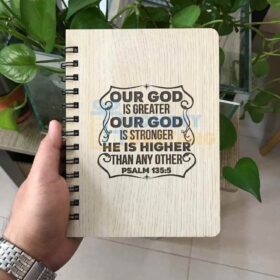 OUR GOD
IS GREATER
OUR GOD
IS STRONGER
HE IS HIGHER
THAN ANY OTHER
PSALM 135:5